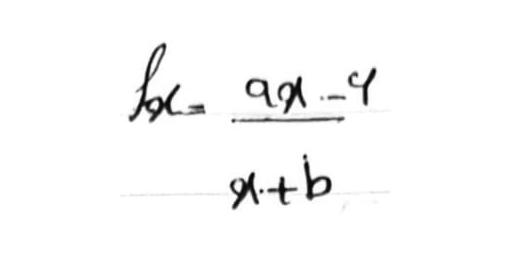 fx = ax - 4
x + b